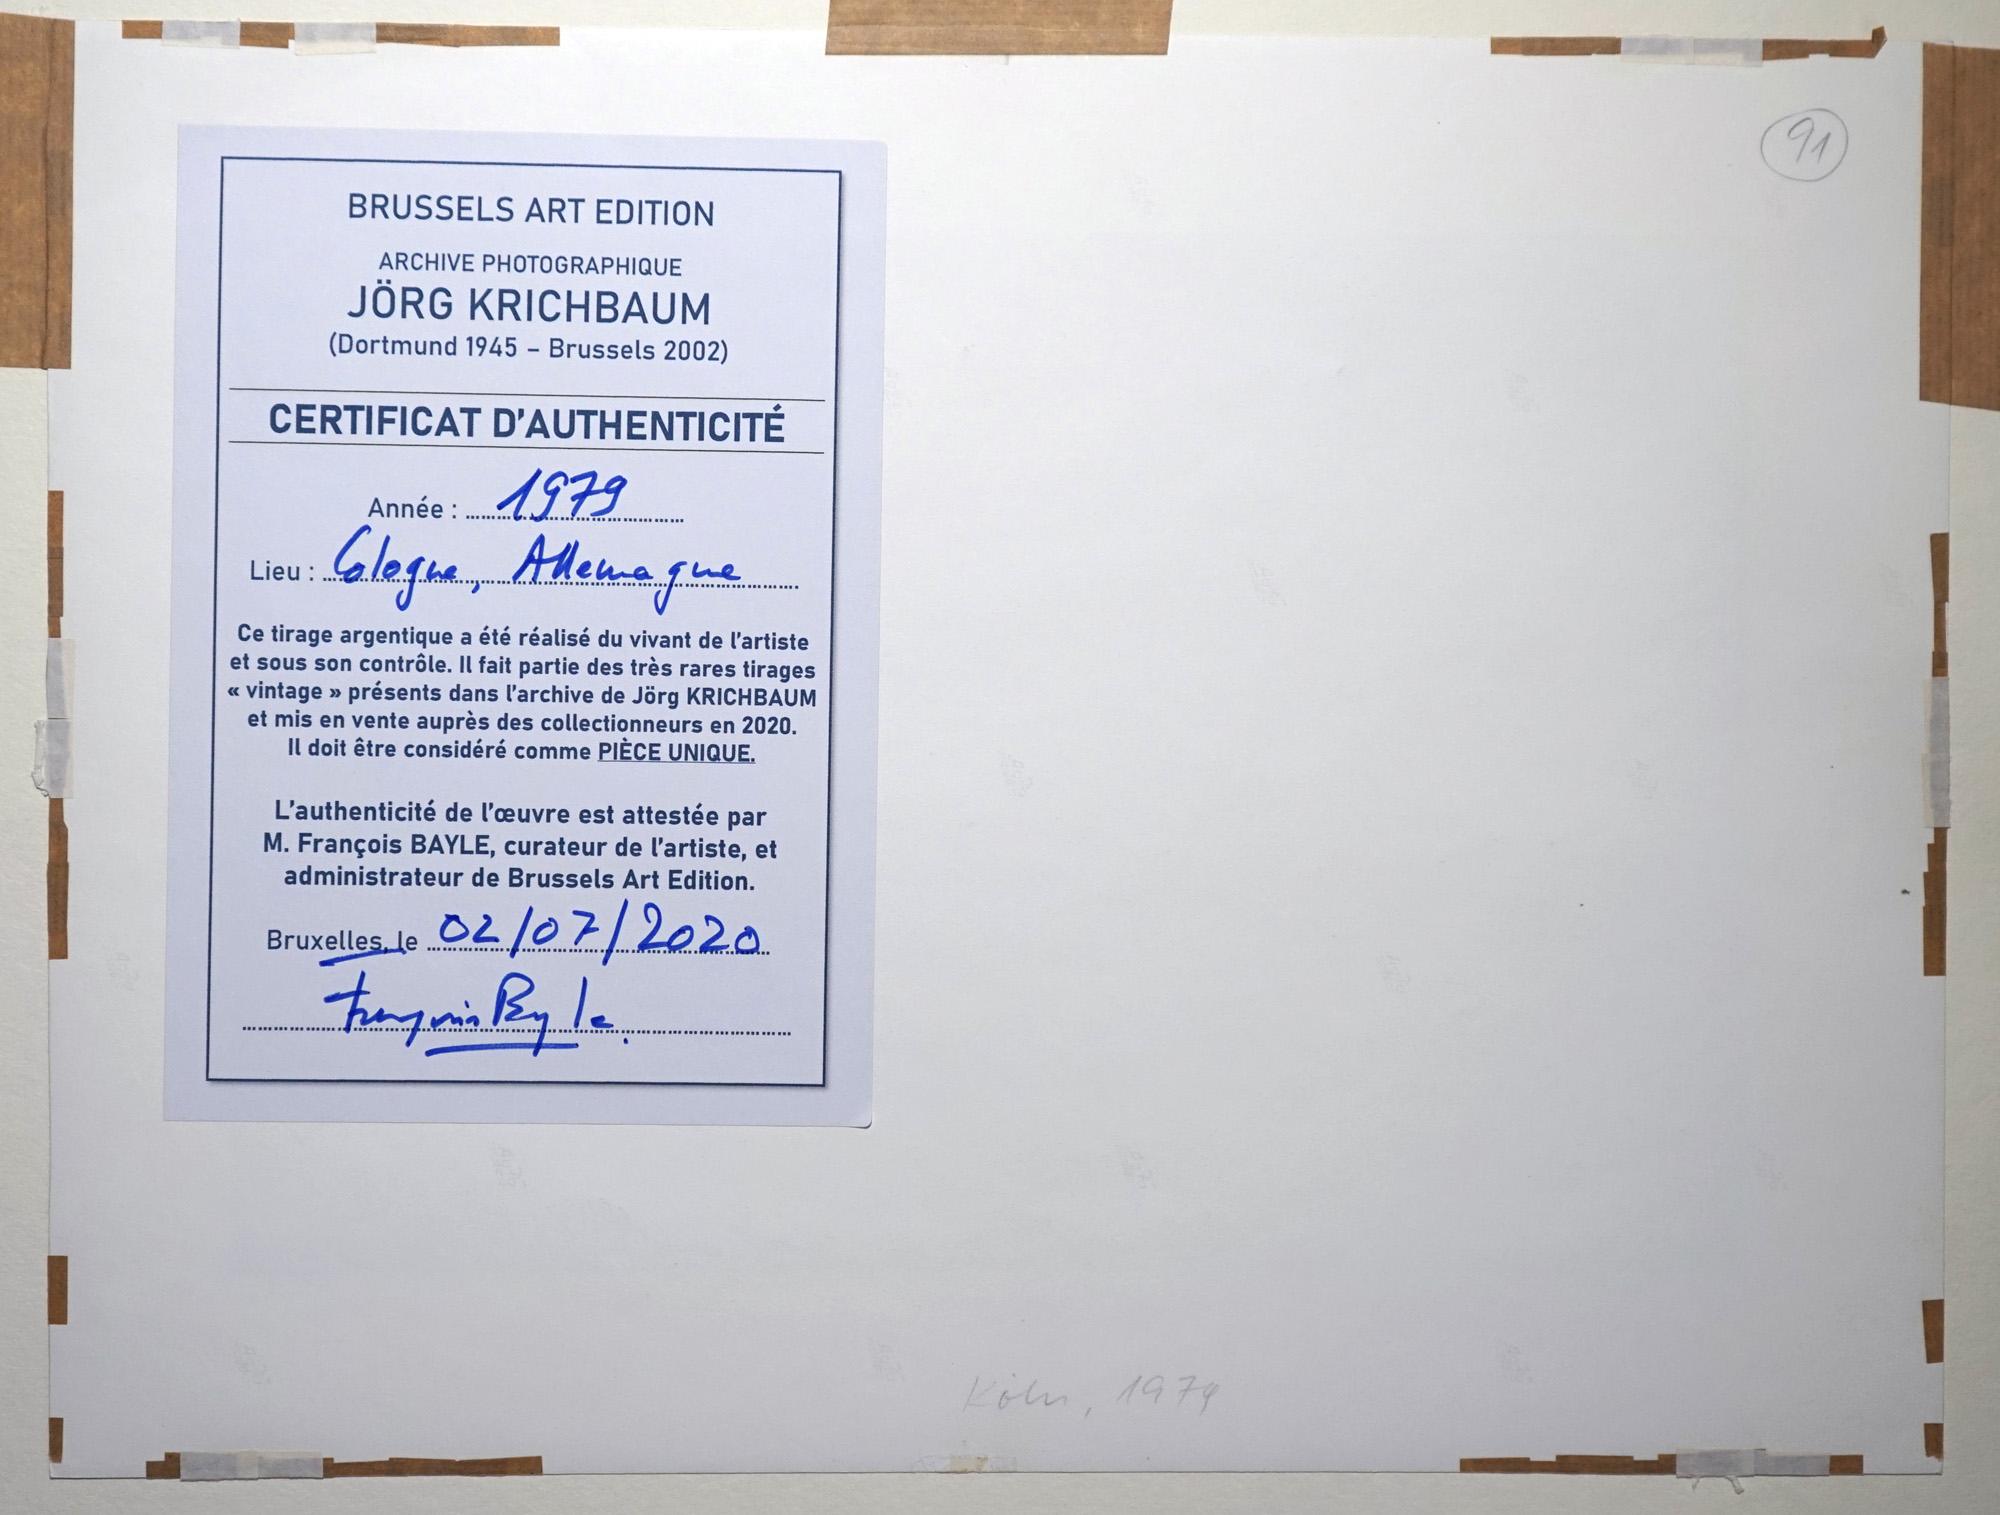 91
BRUSSELS ART EDITION
ARCHIVE PHOTOGRAPHIQUE
JÖRG KRICHBAUM
(Dortmund 1945 – Brussels 2002)
CERTIFICAT D'AUTHENTICITÉ
Année : 1979
Lieu : Cologne, Allemagne
Ce tirage argentique a été réalisé du vivant de l'artiste
et sous son contrôle. Il fait partie des très rares tirages
« vintage » présents dans l'archive de Jörg KRICHBAUM
et mis en vente auprès des collectionneurs en 2020.
Il doit être considéré comme PIÈCE UNIQUE.
L'authenticité de l'œuvre est attestée par
M. François BAYLE, curateur de l'artiste, et
administrateur de Brussels Art Edition.
Bruxelles, le 02/07/2020
François Bayle
Köln, 1979